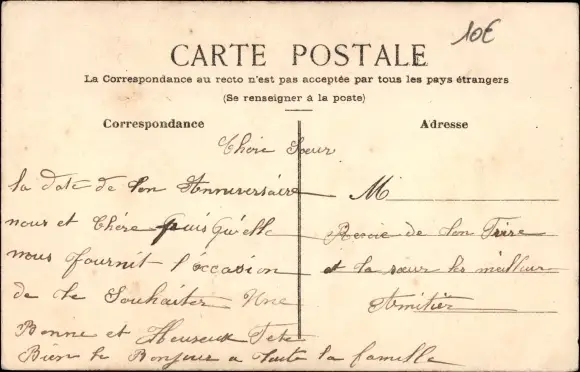 10€
CARTE POSTALE
La Correspondance au recto n'est pas acceptée par tous les pays étrangers
(Se renseigner à la poste)
Correspondance
Adresse
Chère Soeur
la date de ton Anniversaire
nous et Chére puis qu'elle
nous fournit l'occasion
de te Souhaiter Une
Bonne et Heureux Fete
Bien le Bonjour a toute la famille
M
Recoie de ton Frère
et ta sœur les meilleur
Amitiér